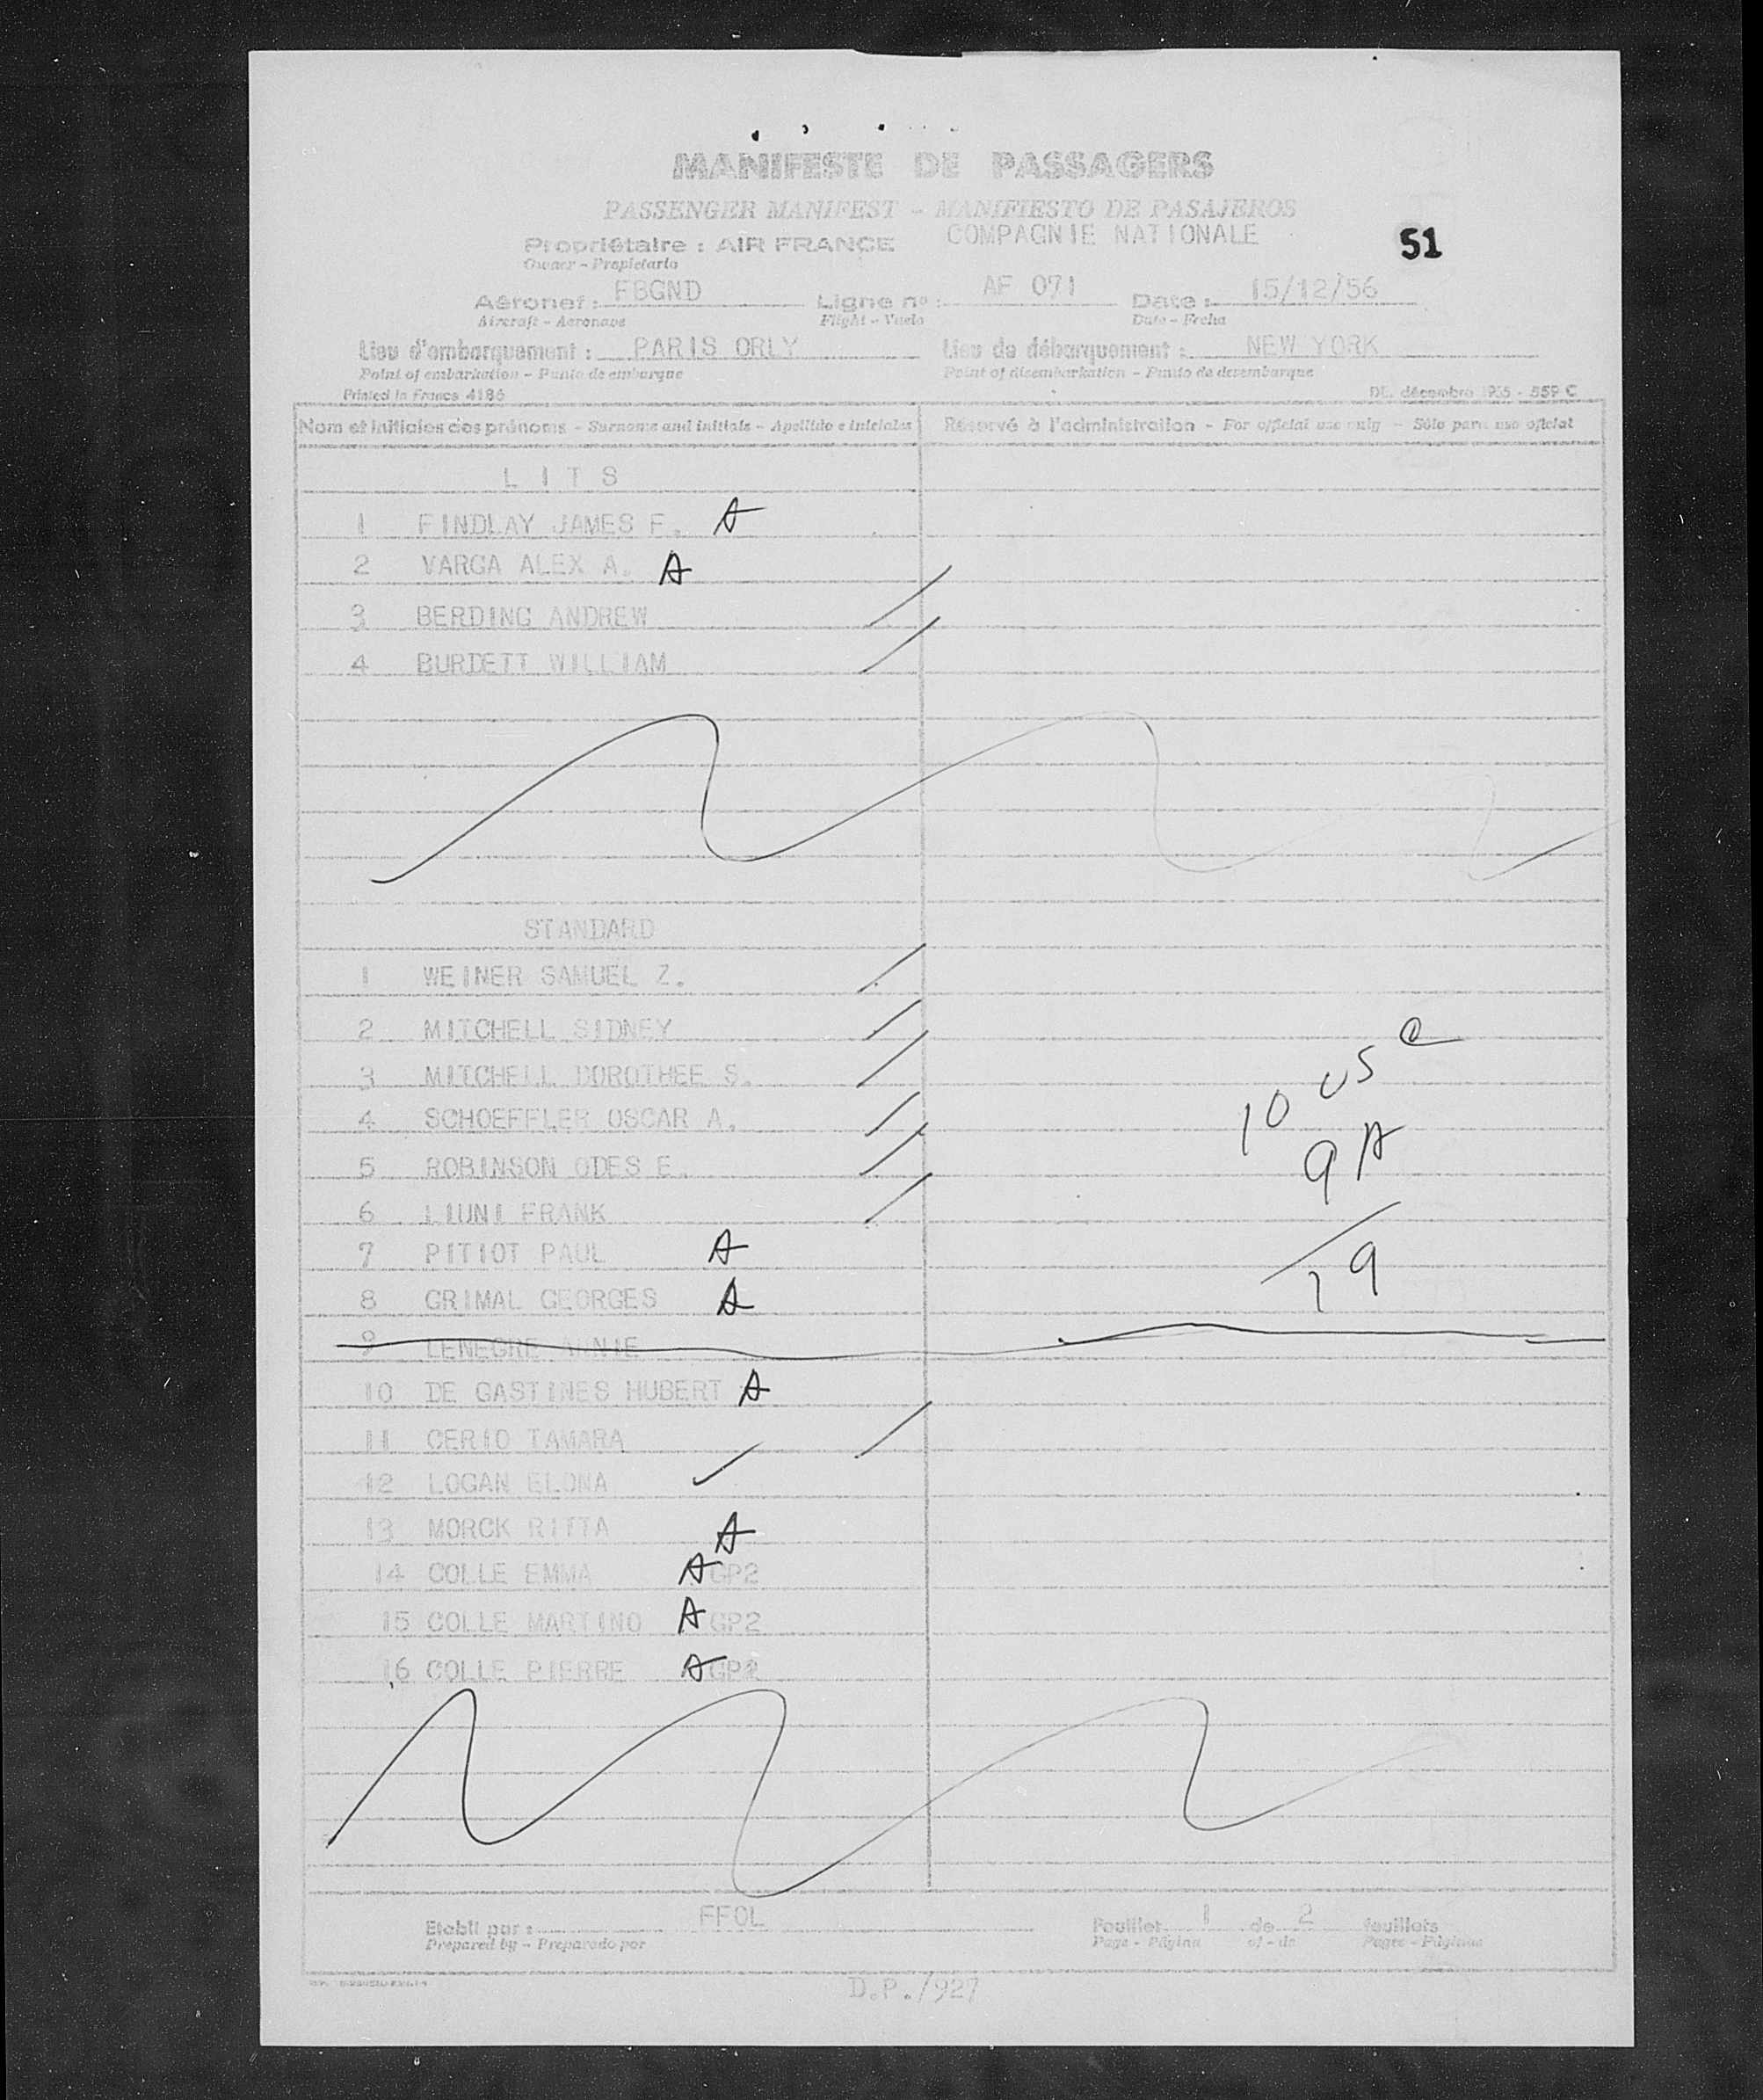 MANIFESTE DE PASSAGERS
PASSENGER MANIFEST - MANIFIESTO DE PASAJEROS
Propriétaire : AIR FRANCE COMPAGNIE NATIONALE
Owner - Propietario
51
Aéronef : FBGND Ligne nº : AF 071 Date : 15/12/56
Aircraft - Aeronave Flight - Vuelo Date - Fecha
Lieu d'embarquement : PARIS ORLY Lieu de débarquement : NEW YORK
Point of embarkation - Punto de embarque Point of disembarkation - Punto de desembarque
Printed in France 4186 DL. décembre 1955 - 559 C
Nom et initiales des prénoms - Surname and initials - Apellido e iniciales Réservé à l'administration - For official use only - Sólo para uso oficial
L I T S
1 FINDLAY JAMES F. A
2 VARGA ALEX A. A
3 BERDING ANDREW
4 BURDETT WILLIAM
STANDARD
1 WEINER SAMUEL Z.
2 MITCHELL SIDNEY
3 MITCHELL DOROTHEE S.
4 SCHOEFFLER OSCAR A.
10 US C
5 ROBINSON ODES E.
9 A
6 LIUNI FRANK
7 PITIOT PAUL A
19
8 GRIMAL GEORGES A
9 LENEGRE ANNIE
10 DE GASTINES HUBERT A
11 CERIO TAMARA
12 LOGAN ELONA
13 MORCK RITTA A
14 COLLE EMMA A GP2
15 COLLE MARTINO A GP2
16 COLLE PIERRE A GP2
Etabli par : FFOL Feuillet 1 de 2 feuillets
Prepared by - Preparado por Page - Página of - de Pages - Páginas
D.P./927